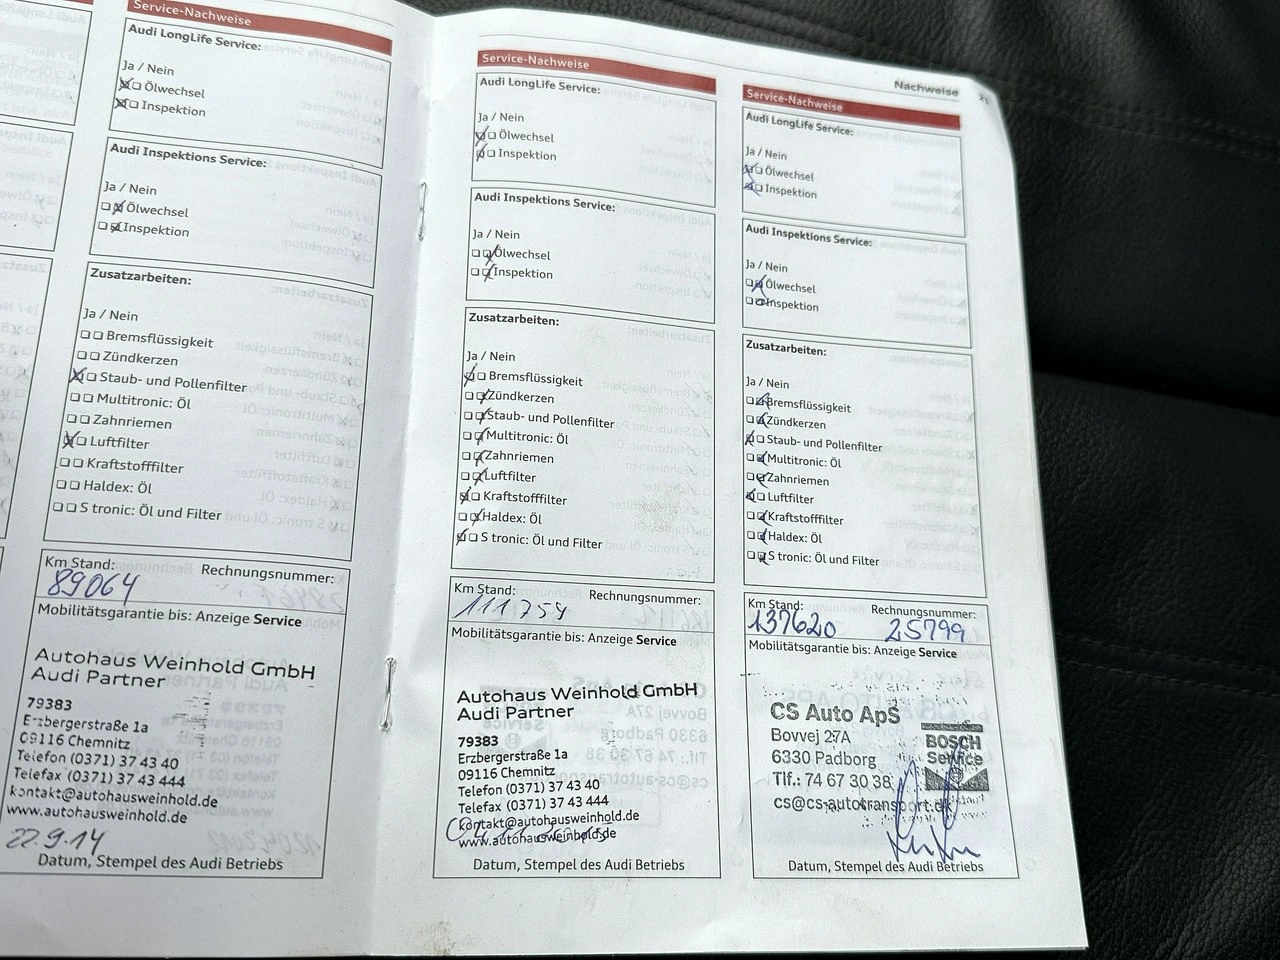 Service-Nachweise
Audi LongLife Service:
Ja / Nein
Ölwechsel
Inspektion
Audi Inspektions Service:
Ja / Nein
Ölwechsel
Inspektion
Zusatzarbeiten:
Ja / Nein
Bremsflüssigkeit
Zündkerzen
Staub- und Pollenfilter
Multitronic: Öl
Zahnriemen
Luftfilter
Kraftstofffilter
Haldex: Öl
S tronic: Öl und Filter
Km Stand: Rechnungsnummer:
89064
Mobilitätsgarantie bis: Anzeige Service
Autohaus Weinhold GmbH
Audi Partner
79383
Erzbergerstraße 1a
09116 Chemnitz
Telefon (0371) 37 43 40
Telefax (0371) 37 43 444
kontakt@autohausweinhold.de
www.autohausweinhold.de
22.9.14
Datum, Stempel des Audi Betriebs
Service-Nachweise
Audi LongLife Service:
Ja / Nein
Ölwechsel
Inspektion
Audi Inspektions Service:
Ja / Nein
Ölwechsel
Inspektion
Zusatzarbeiten:
Ja / Nein
Bremsflüssigkeit
Zündkerzen
Staub- und Pollenfilter
Multitronic: Öl
Zahnriemen
Luftfilter
Kraftstofffilter
Haldex: Öl
S tronic: Öl und Filter
Km Stand: Rechnungsnummer:
111759
Mobilitätsgarantie bis: Anzeige Service
Autohaus Weinhold GmbH
Audi Partner
79383
Erzbergerstraße 1a
09116 Chemnitz
Telefon (0371) 37 43 40
Telefax (0371) 37 43 444
kontakt@autohausweinhold.de
www.autohausweinhold.de
Datum, Stempel des Audi Betriebs
Nachweise
21
Service-Nachweise
Audi LongLife Service:
Ja / Nein
Ölwechsel
Inspektion
Audi Inspektions Service:
Ja / Nein
Ölwechsel
Inspektion
Zusatzarbeiten:
Ja / Nein
Bremsflüssigkeit
Zündkerzen
Staub- und Pollenfilter
Multitronic: Öl
Zahnriemen
Luftfilter
Kraftstofffilter
Haldex: Öl
S tronic: Öl und Filter
Km Stand: Rechnungsnummer:
137620 25799
Mobilitätsgarantie bis: Anzeige Service
CS Auto ApS
Bovvej 27A
6330 Padborg
Tlf.: 74 67 30 38
cs@cs-autotransport.dk
BOSCH
Service
Datum, Stempel des Audi Betriebs